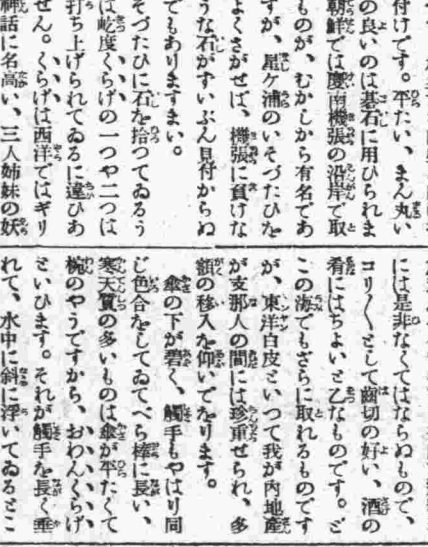 付けです。平たい、まん丸い
の良いのは碁石に用ひられま
朝鮮では慶南機張の沿岸で取
ものが、むかしから有名であ
すが、星ケ浦のいそづたひを
よくさがせば、機張に負けな
うな石がずいぶん見付からぬ
でもありますまい。
そづたひに石を拾つてゐるう
は屹度くらげの一つや二つは
打ち上げられてゐるに違ひあ
せん。くらげは西洋ではギリ
神話に名高い、三人姉妹の妖
には是非なくてはならぬもので、
コリ〱として齒切の好い、酒の
肴にはちよいと乙なものです。ど
この海でもざらに取れるものです
が、東洋白皮といつて我が內地產
が支那人の間には珍重せられ、多
額の移入を仰いでをります。
傘の下が碧く、觸手もやはり同
じ色合をしてゐてべら棒に長い、
寒天質の多いものは傘が平たくて
椀のやうですから、おわんくらげ
といひます。それが觸手を長く垂
れて、水中に斜に浮いてゐるとこ